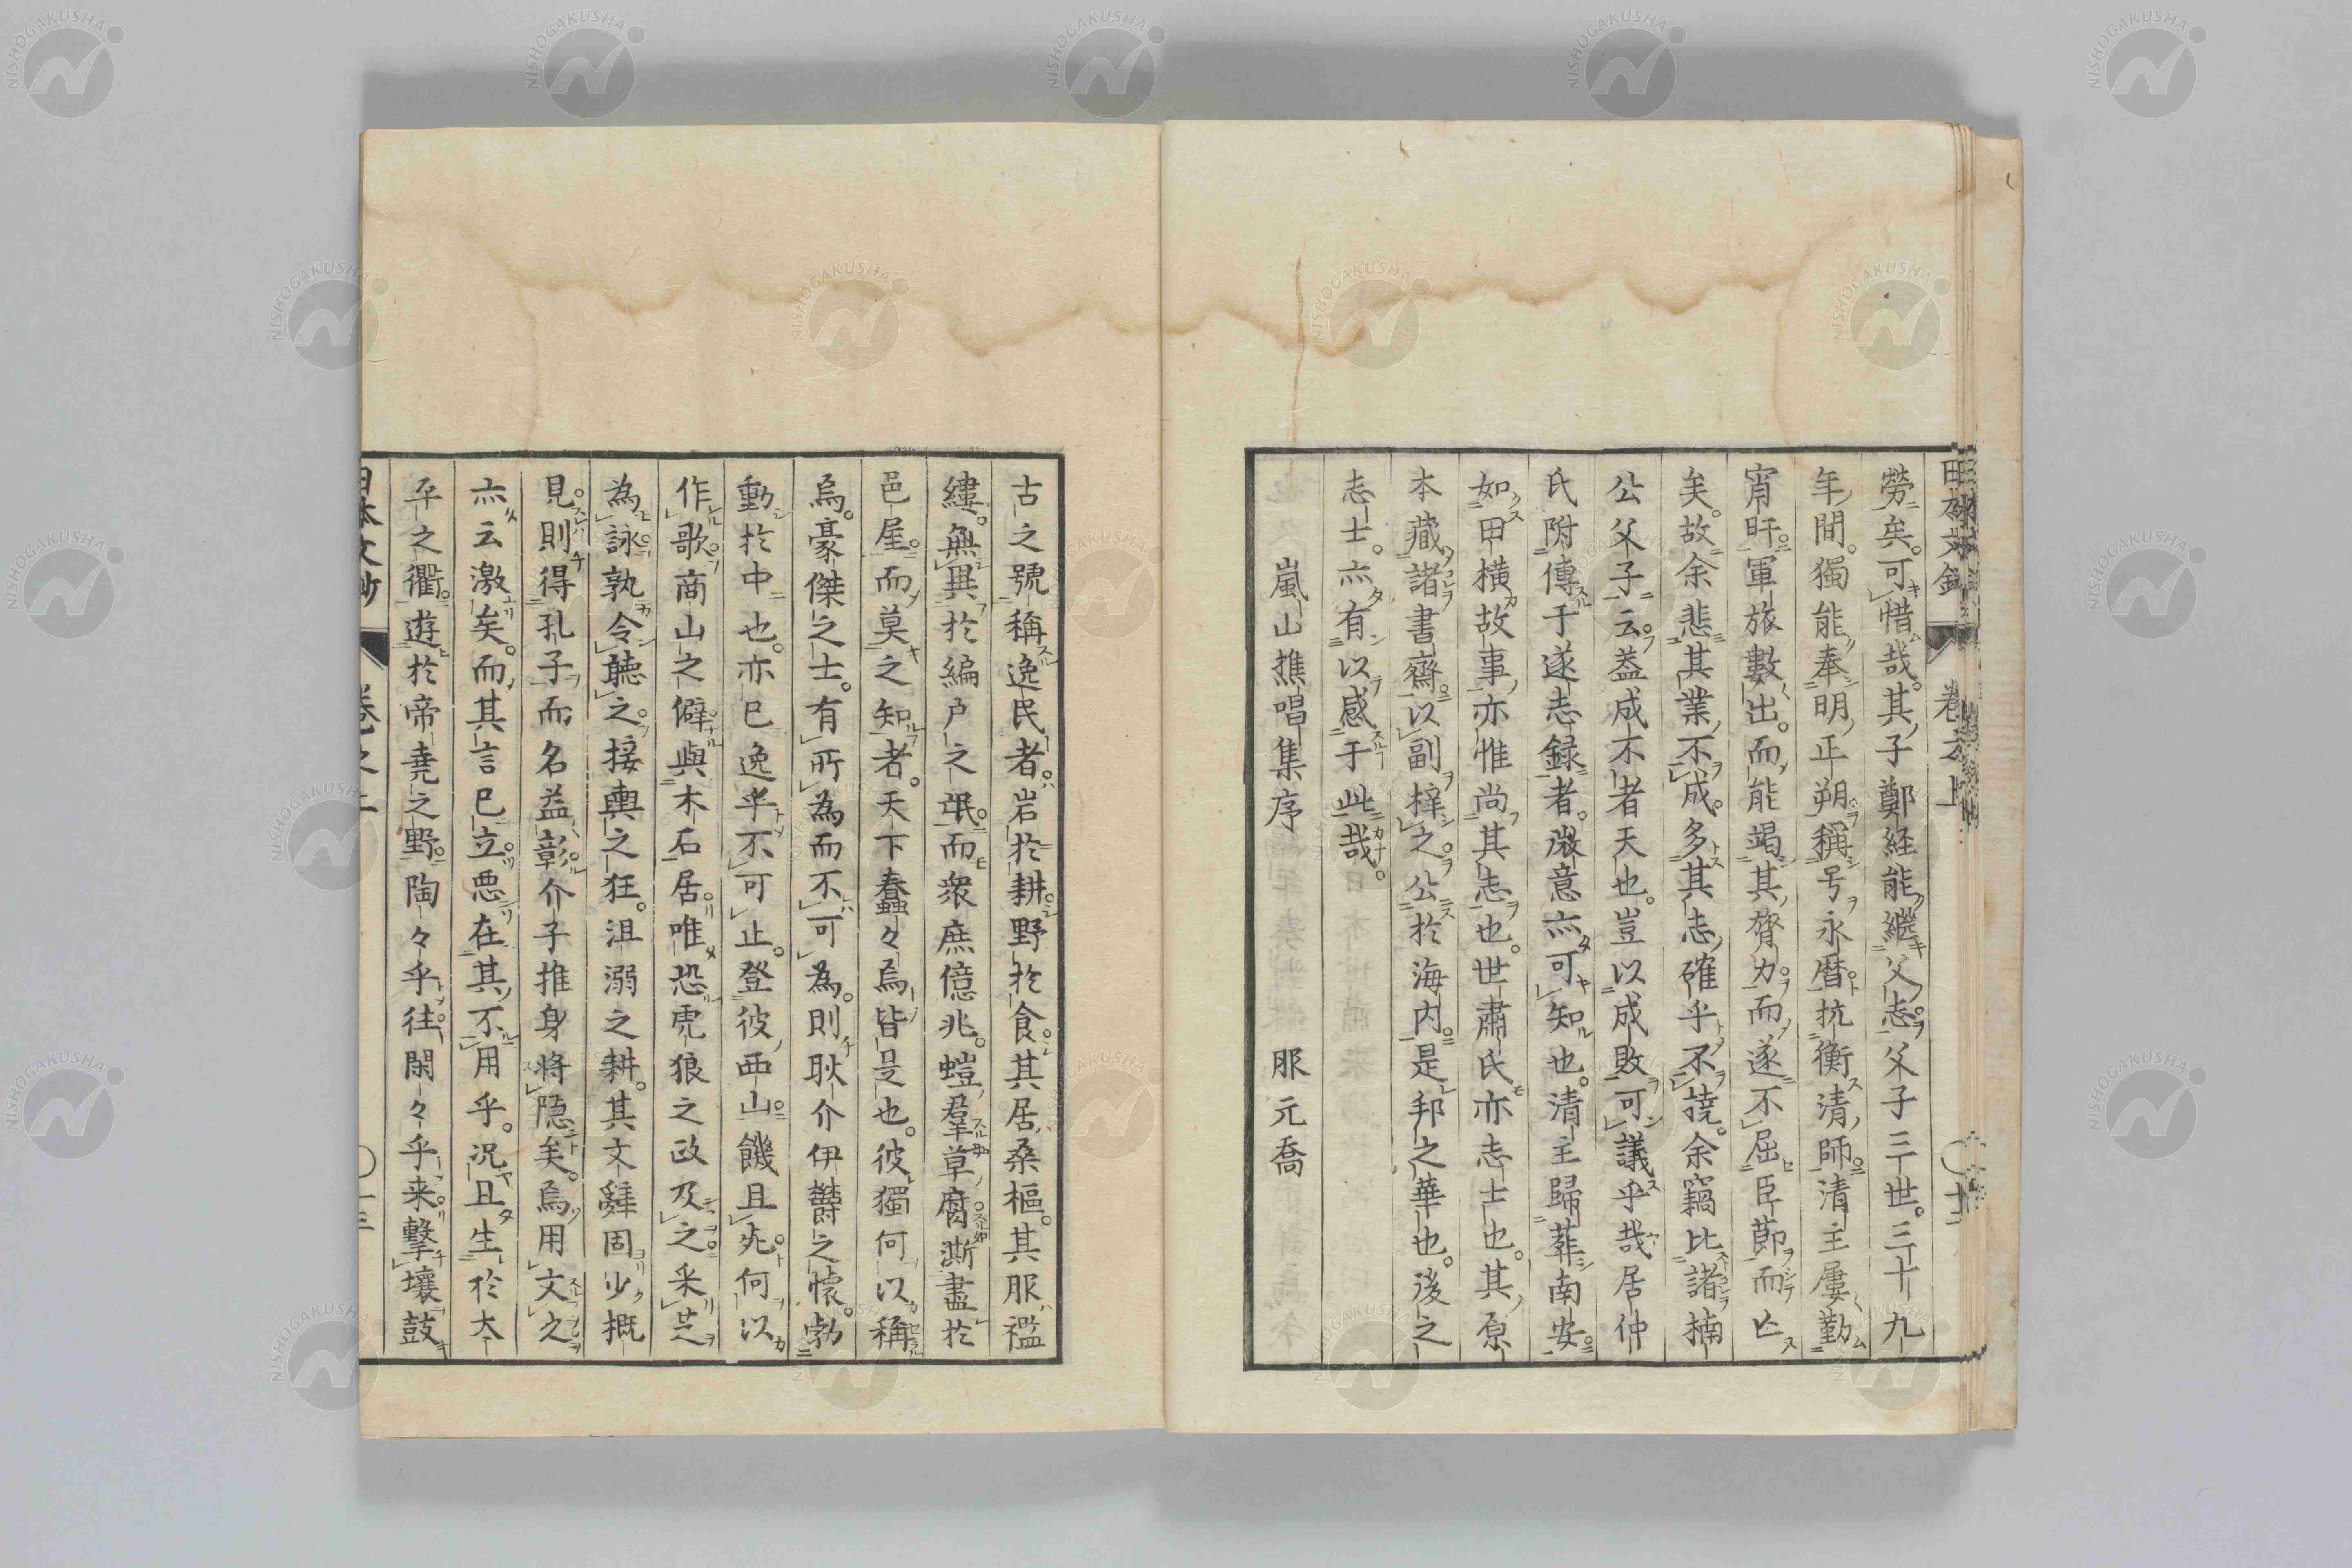 勞矣。可惜哉。其子鄭経能繼父志。父子三世。三十九
年間。獨能奉明正朔。稱号永暦。抗衡清師。清主屢勤
宵旰。軍旅數出。而能竭其膂力。而遂不屈臣節而亡
矣。故余悲其業不成。多其志確乎不撓。余竊比諸楠
公父子云。盖成不者天也。豈以成敗可議乎哉。居仲
氏附傳于遂志録者。微意亦可知也。清主歸葬南安。
如田横故事。亦惟尚其志也。世肅氏亦志士也。其原
本藏諸書齋。以副梓之。公於海内。是邦之華也。後之
志士。亦有以感于此哉。
嵐山樵唱集序 服元喬
古之號稱逸民者。岩於耕。野於食。其居桑樞。其服襤
縷。無異於編戸之氓。而衆庶億兆。螘群草腐。澌盡於
邑屋。而莫之知者。天下蠢々焉皆是也。彼獨何以稱
焉。豪傑之士。有所為而不可為。則耿介伊欝之懐。勃
動於中也。亦已逸乎不可止。登彼西山。饑且死。何以
作歌。商山之僻。與木石居。唯恐虎狼之政及之。采芝
為詠。孰令聽之。接輿之狂。沮溺之耕。其文辭固少概
見。則得孔子而名益彰。介子推身将隠矣。焉用文之
亦云激矣。而其言已立。悪在其不用乎。況且生於太
平之衢。遊於帝堯之野。陶々乎往。閑々乎来。撃壤鼓
日本文鈔 卷之上
NISHOGAKUSHA